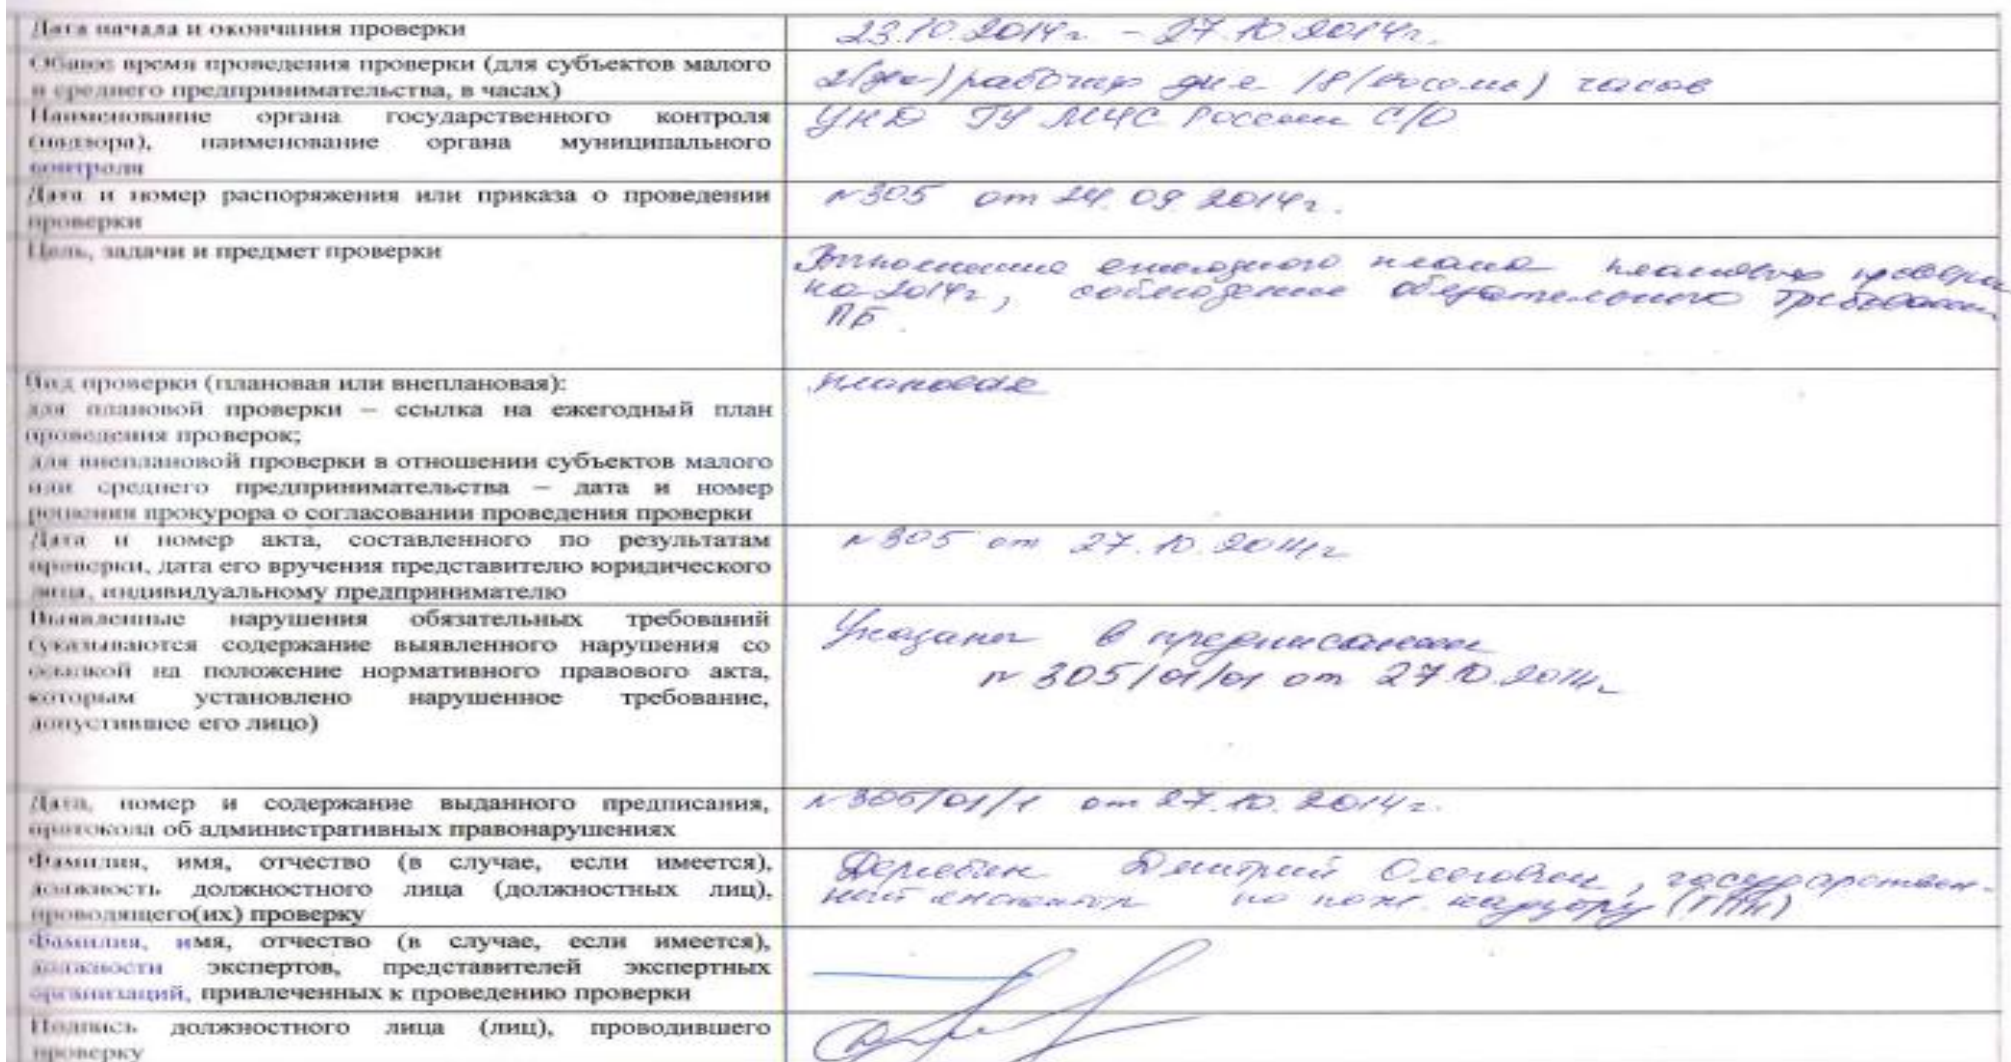 Дата начала и окончания проверки
23.10.2014г. - 27.10.2014г.
Общее время проведения проверки (для субъектов малого
и среднего предпринимательства, в часах)
2(два) рабочих дня /8(восемь) часов
Наименование органа государственного контроля
(надзора), наименование органа муниципального
контроля
УНД ГУ МЧС России С/О
Дата и номер распоряжения или приказа о проведении
проверки
№305 от 24.09.2014г.
Цель, задачи и предмет проверки
Выполнение ежегодного плана плановых проверок
на 2014г, соблюдение обязательного требований
ПБ.
Вид проверки (плановая или внеплановая):
для плановой проверки – ссылка на ежегодный план
проведения проверок;
для внеплановой проверки в отношении субъектов малого
или среднего предпринимательства – дата и номер
решения прокурора о согласовании проведения проверки
плановая
Дата и номер акта, составленного по результатам
проверки, дата его вручения представителю юридического
лица, индивидуальному предпринимателю
№305 от 27.10.2014г
Выявленные нарушения обязательных требований
(указываются содержание выявленного нарушения со
ссылкой на положение нормативного правового акта,
которым установлено нарушенное требование,
допустившее его лицо)
Указаны в предписании
№ 305/01/01 от 27.10.2014г
Дата, номер и содержание выданного предписания,
протокола об административных правонарушениях
№305/01/1 от 27.10.2014г.
Фамилия, имя, отчество (в случае, если имеется),
должность должностного лица (должностных лиц),
проводящего(их) проверку
Дмитрий Олегович, государствен-
ный инспектор по пож. надзору (ГПН)
Фамилия, имя, отчество (в случае, если имеется),
должности экспертов, представителей экспертных
организаций, привлеченных к проведению проверки
Подпись должностного лица (лиц), проводившего
проверку